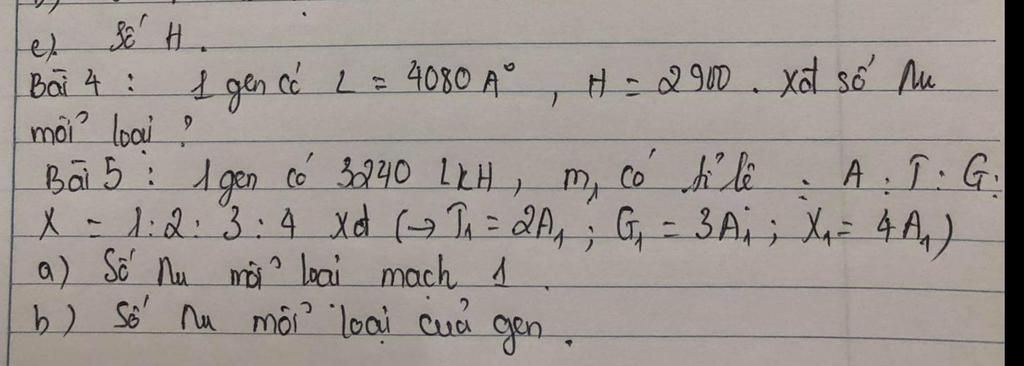 e). Số H.
Bài 4 : 1 gen có L = 4080 A°, H = 2900. Xđ số Nu
mỗi loại ?
Bài 5 : 1 gen có 3240 LkH, m₁ có tỉ lệ : A : T : G :
X = 1 : 2 : 3 : 4 Xđ (→ T₁ = 2A₁ ; G₁ = 3A₁ ; X₁ = 4A₁)
a) Số Nu mỗi loại mạch 1.
b) Số Nu mỗi loại của gen.